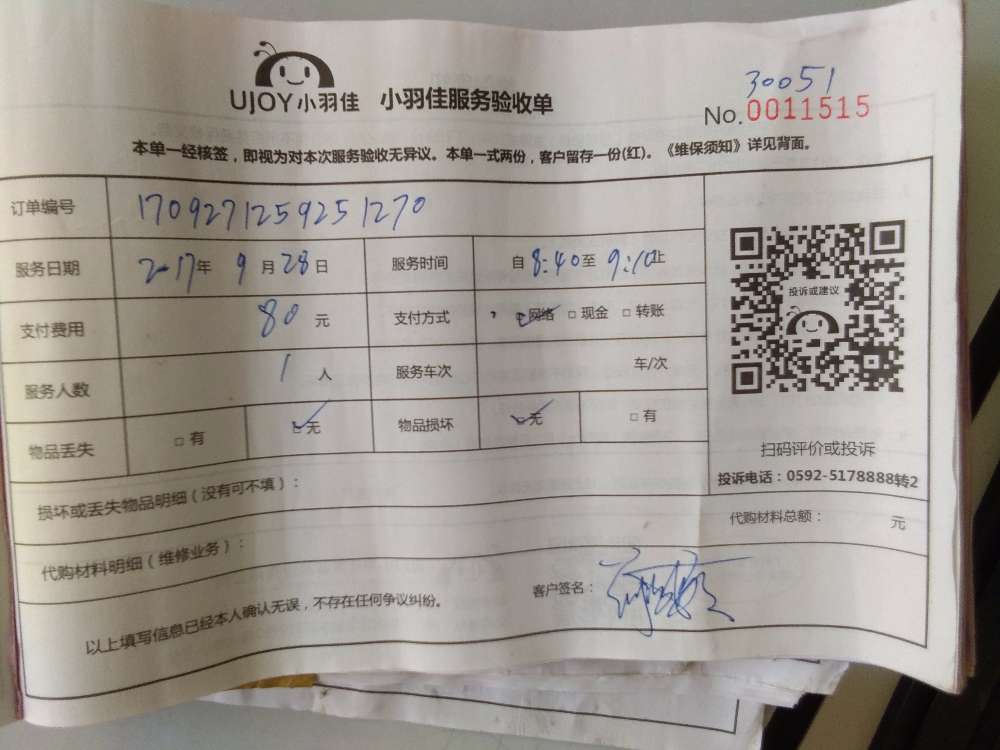 30051
UJOY小羽佳 小羽佳服务验收单 No.0011515
本单一经核签，即视为对本次服务验收无异议。本单一式两份，客户留存一份(红)。《维保须知》详见背面。
订单编号 1709271259251270
服务日期 2017年9月28日 服务时间 自8:40至9:10止
投诉或建议
支付费用 80元 支付方式 ☑网络 □现金 □转账
服务人数 1人 服务车次 车/次
物品丢失 □有 ☑无 物品损坏 ☑无 □有
扫码评价或投诉
投诉电话：0592-5178888转2
损坏或丢失物品明细（没有可不填）：
代购材料总额： 元
代购材料明细（维修业务）：
客户签名：
以上填写信息已经本人确认无误，不存在任何争议纠纷。